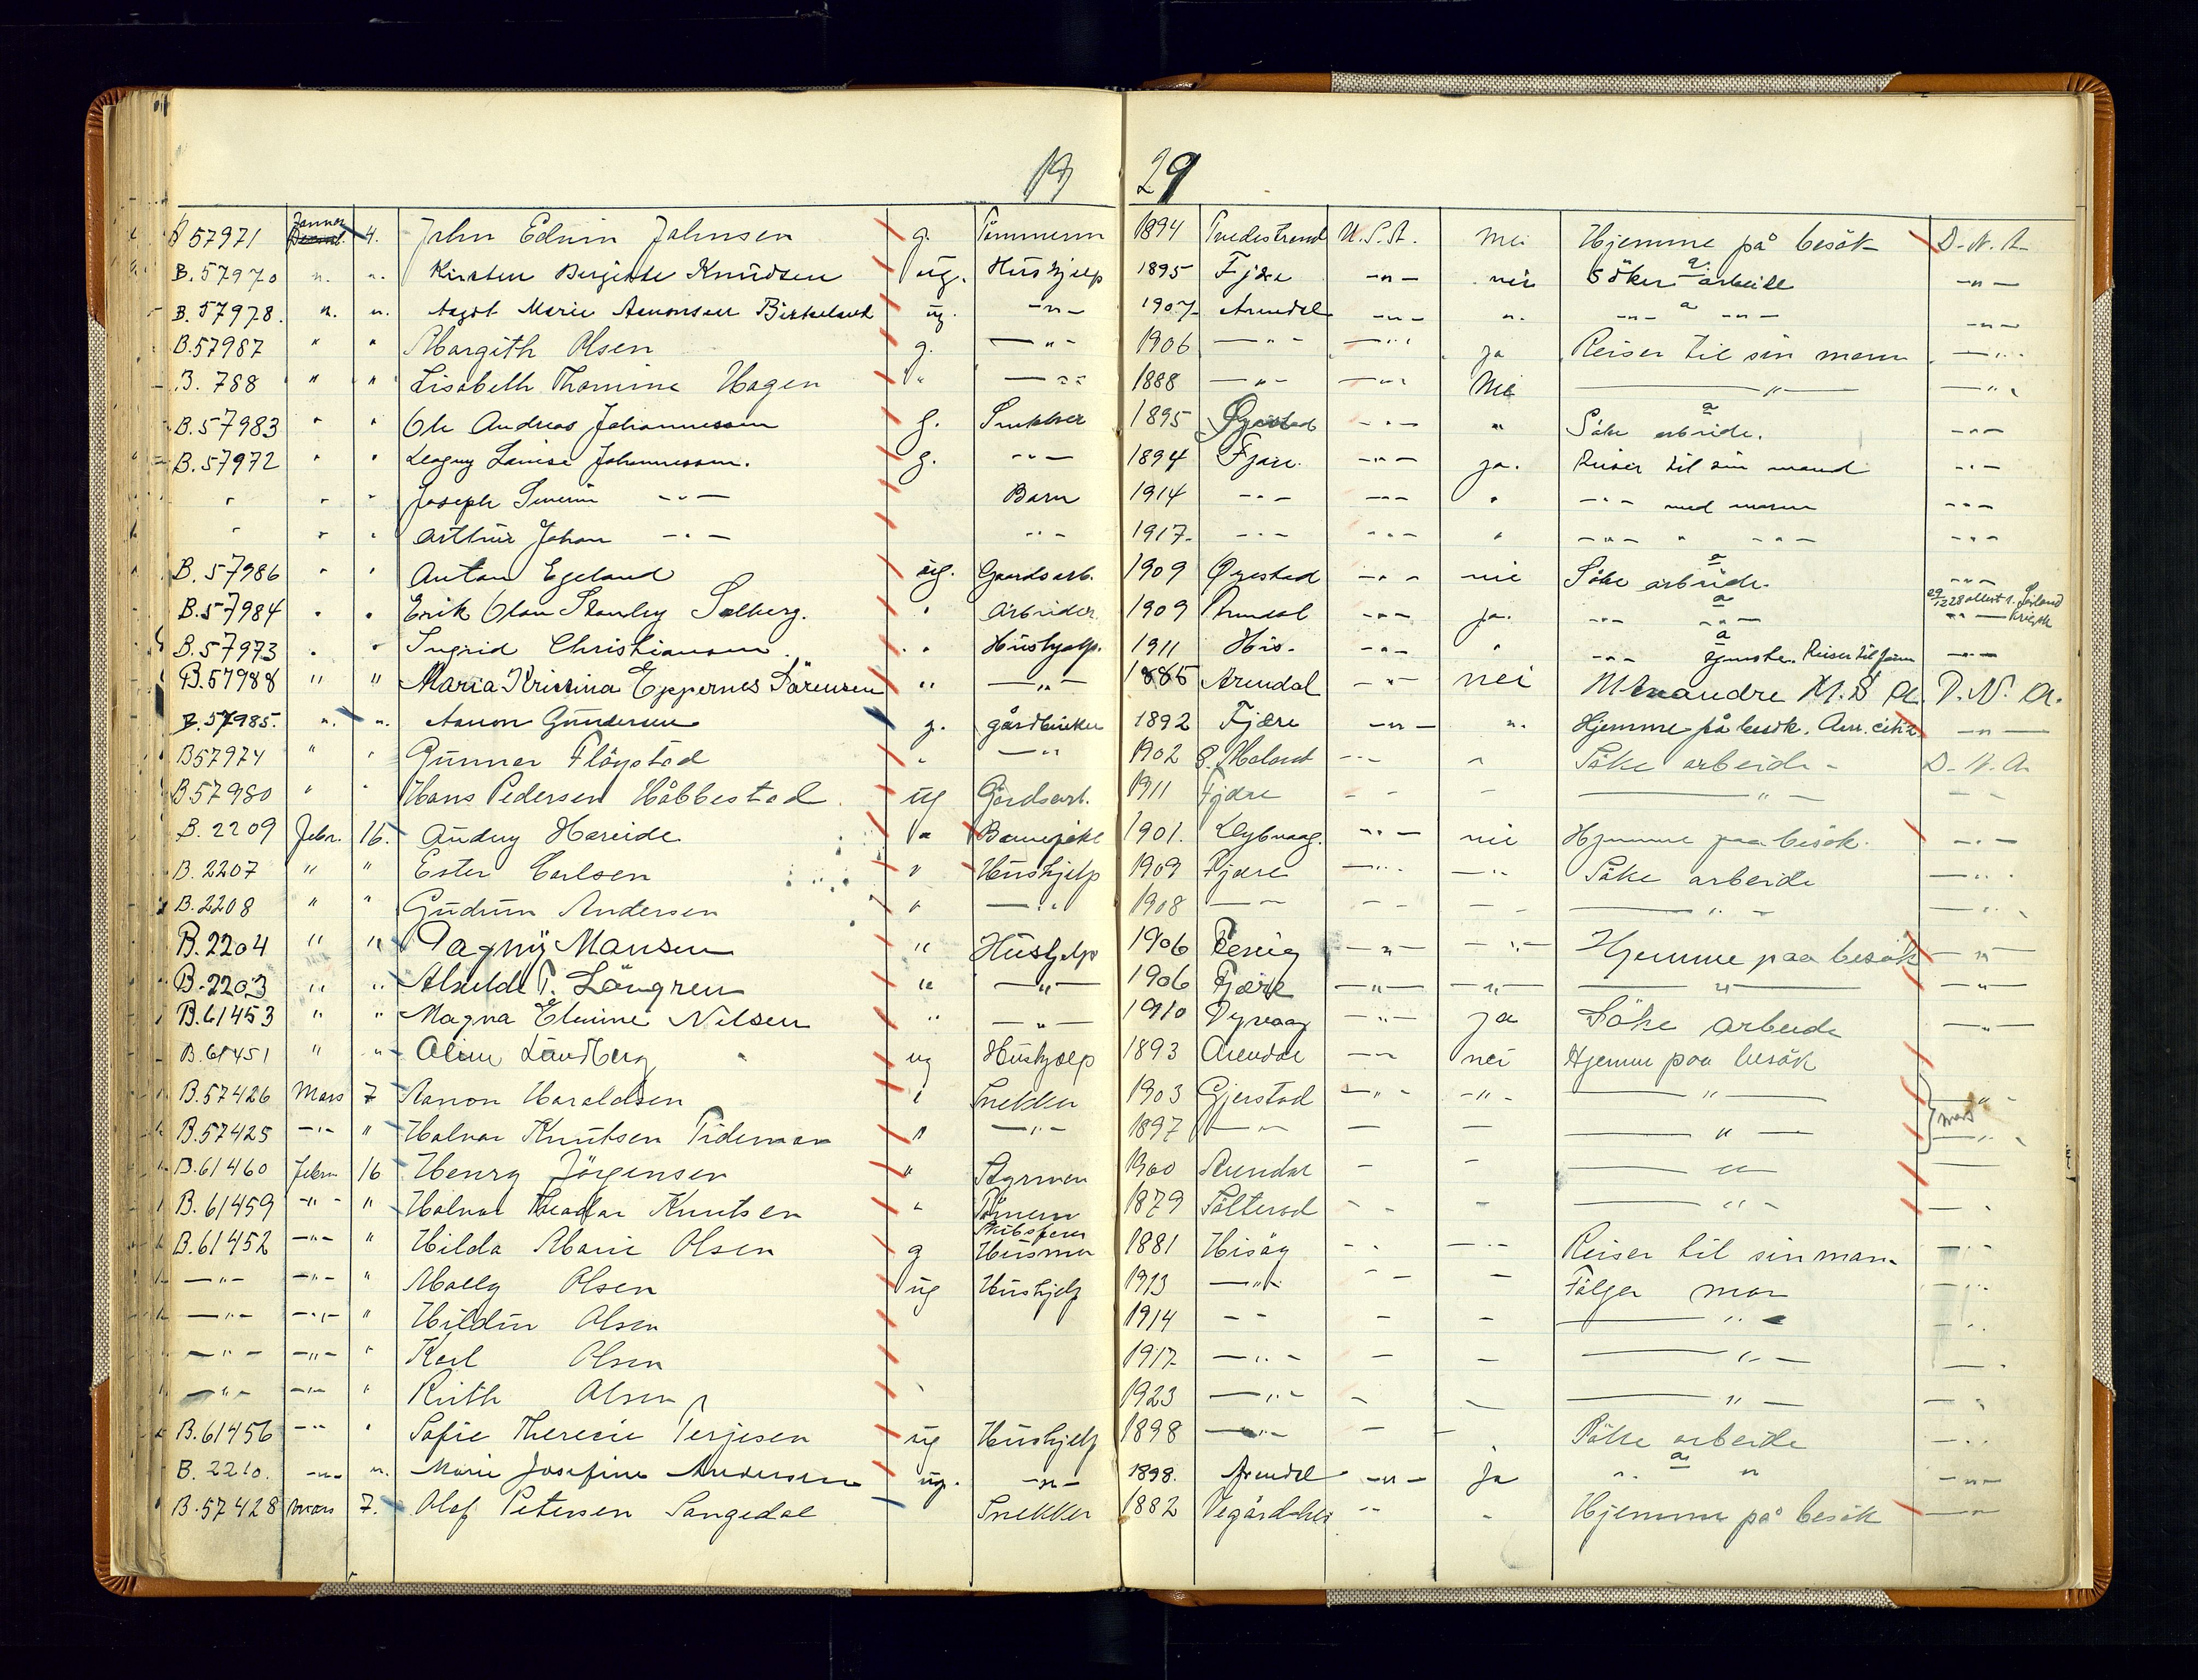 19 29
B 57971 Januar 4. John Edwin Johnsen g. Tömmerm 1894 Tvedestrand U.S.A. nei Hjemme på besök D.N.A.
B. 57970 " " Kirsten Birgitte Knudsen ug. Hushjelp 1895 Fjære -"- nei Söker a arbeide -"-
B. 57978. " " Aagot Marie Aanonsen Birkeland ug. -"- 1907 Arendal -"- " -"- a -"- -"-
B.57987 " " Margith Olsen g. -"- 1906 -"- -"- ja Reiser til sin mann -"-
B. 788 " " Lisabeth Thomine Hagen " -"- 1888 -"- -"- Nei -"- -"-
B.57983 " " Ole Andreas Johannessen g. Snekker 1895 Øyestad -"- " Söke a arbeide. -"-
B.57972 " " Dagny Louise Johannessen. g. -"- 1894 Fjære. -"- ja. Reiser til sin mand -"-
" " " Joseph Severin -"- Barn 1914 -"- -"- " -"- med moren -"-
" " " Arthur Johan -"- -"- 1917. -"- -"- " -"- " -"- -"-
B. 57986 " " Anton Egeland ug. Gaardsarb. 1909 Øyestad -"- nei Söke a arbeide. -"-
B.57984 " " Erik Olau Stanley Solberg. " Arbeider 1909 Arendal -"- ja. -"- a -"- 29/12 28 attest s. -"-
B.57973 " " Ingrid Christiansen. " Hushjelp. 1911 His. -"- " -"- a tjeneste. Reiser til -"-
B.57988 " " Maria Kristina Eppernes Sörensen " -"- 1885 Arendal -"- nei D.N.A.
B.57985. " " Aanon Gundersen g. gårdbruker 1892 Fjære -"- " Hjemme på besök. Am. citiz -"-
B57974 " " Gunnar Flöystad " -"- 1902 Ö. Moland -"- " Söke arbeide - D.N.A.
B57980 " " Hans Pedersen Håbbestad. ug Gårdsarb. 1911 Fjære - - - -"- - -
B. 2209 Febr. 16. Audny Hareide " Barnepike 1901. Dybvaag. -"- nei Hjemme paa besök. -"-
B. 2207 " " Ester Carlsen " Hushjelp 1909 Fjære -"- -"- Söke arbeide -"-
B. 2208 " " Gudrun Andersen " -"- 1908 -"- - - - - -"- -"-
B.2204 " " Dagny Hansen " Hushjelp 1906 -"- -"- Hjemme paa besök -"-
B.2203 " " T. Löngren " -"- 1906 Fjære -"- -"- -"- -"-
B.61453 " " Magna Elvine Nilsen " -"- 1910 Dyvaag -"- ja Söke arbeide -"-
B. 61451 " " Aline Lundberg ug Hushjælp 1893 Arendal -"- nei Hjemme paa besök
B.57426 Mars 7 Aanon Haraldsen " Snekker 1903 Gjerstad -"- -"- -"- -"-
B.57425 -"- " Halvor Knutsen Tideman " -"- 1897 -"- - - -"- 7 mars -"-
B.61460 Febru 16 Henry Jörgensen " Styrman 1900 Arendal - - -"- -
B. 61459 -"- " Halvor Theodor Knutsen " Tömerm 1879 Solterod - - - -"- -
B.61452 -"- " Hilda Marie Olsen g Husmor 1881 Hisöy - - -"- Reiser til sin man. -"-
-"- -"- " Molly Olsen ug Hushjelp 1913 -"- - - - Fölger mor -"-
-"- -"- " Hildur Olsen 1914 - - - - -"- -"-
-"- -"- " Karl Olsen 1917 -"- - - -"- -
-"- -"- " Ruth Olsen 1923 -"- - - -"- -
B.61456 -"- " Sofie Therecie Terjesen ug Hushjelp 1898 -"- - - Söke arbeide -"-
B. 2210. -"- " Marie Josefine Andersen ug. -"- 1898. Arendal -"- Ja " a " -"-
B.57428 Mars 7. Olaf Petersen Songedal Snekker 1882 Vegårdshei -"- - Hjemme på besök -"-